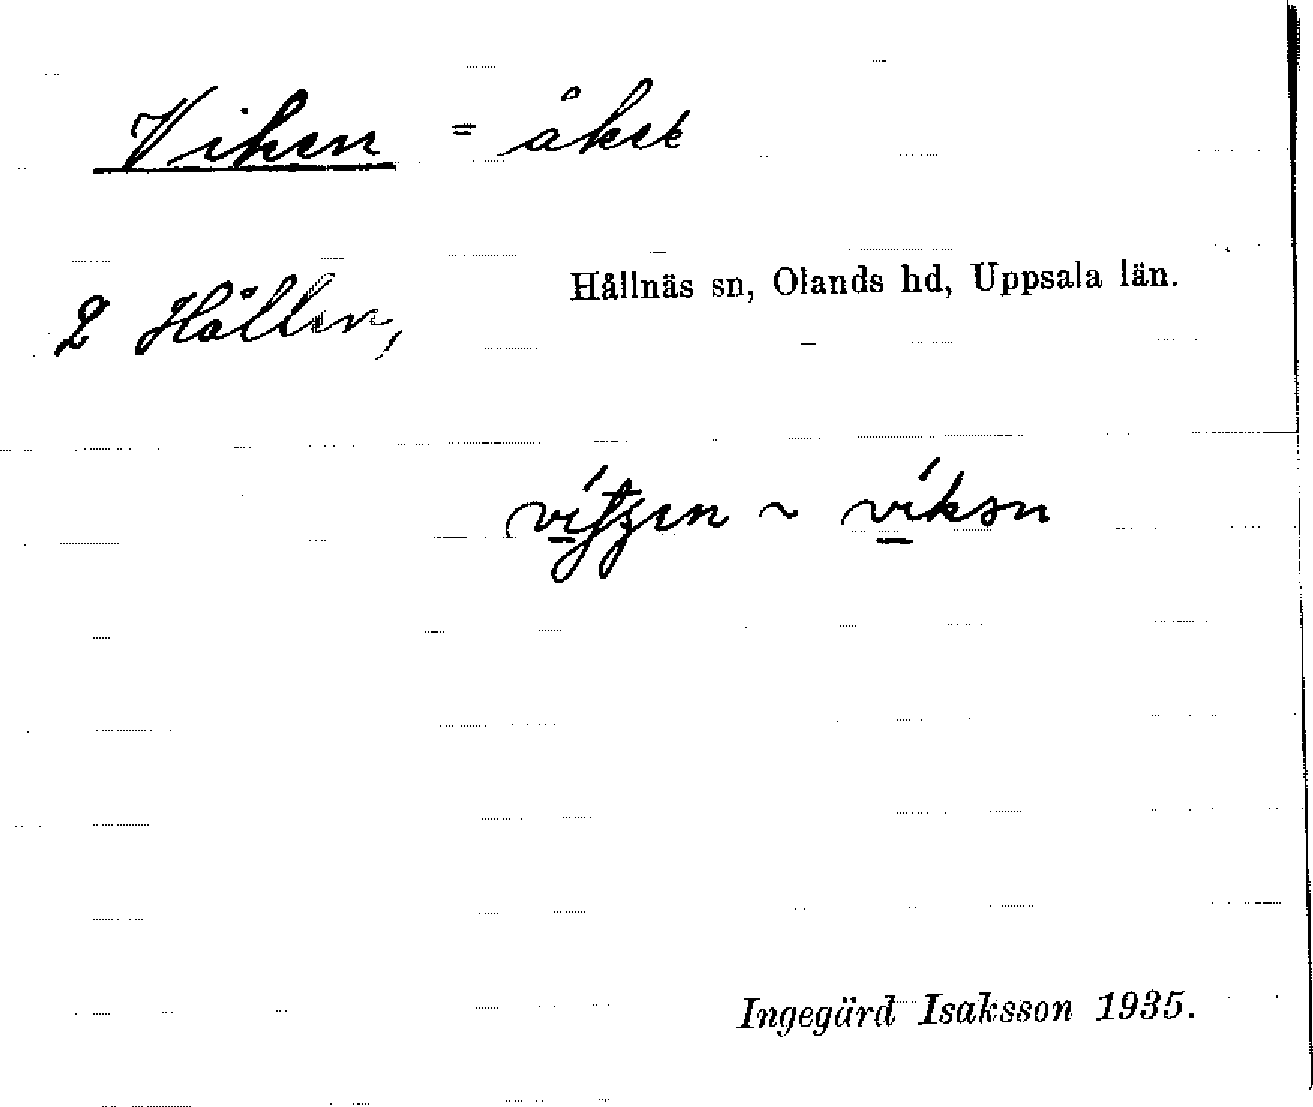 Viken = åker
2 Hållen,
Hållnäs sn, Olands hd, Uppsala län.
~ víkən
Ingegärd Isaksson 1935.